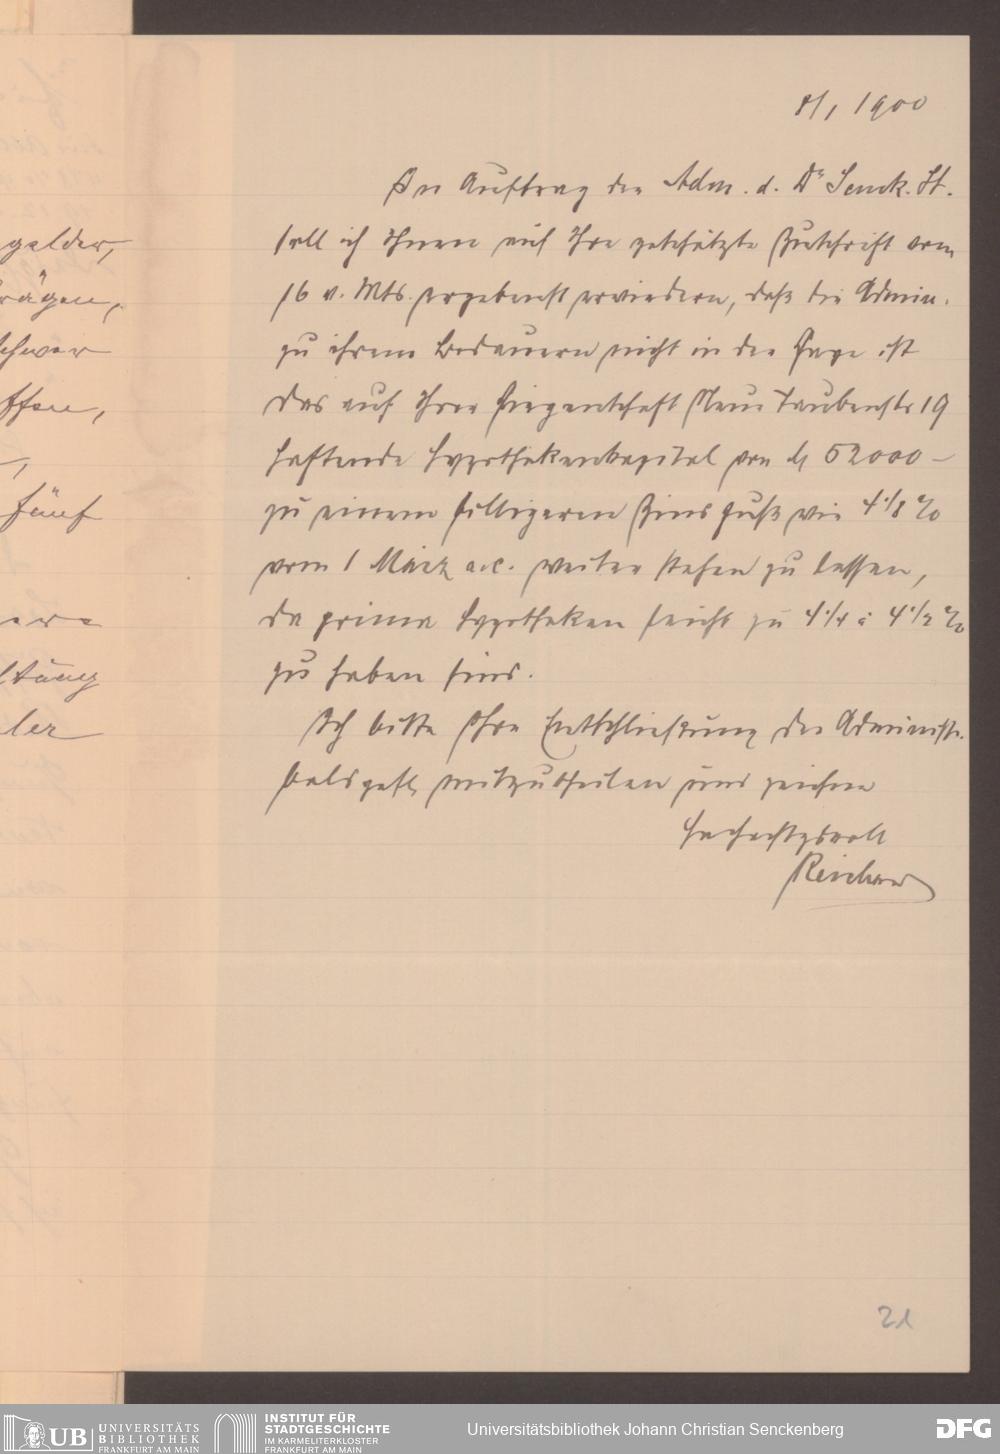 8/1 1900
Im Auftrag der Adm. d. Dr Senck. St.
soll ich Ihnen auf Ihre geschätzte Zuschrift vom
16 v. Mts. ergebenst erwiedern, daß die Admin.
zu ihrem Bedauern nicht in der Lage ist
das auf Ihrer Liegenschaft Neue Taubenstr 19
haftende Hypothekenkapital von M 52000 –
zu einem billigeren Zinsfuß wie 4 1/8 %
vom 1 März a.c. weiter stehen zu lassen,
da prima Hypotheken leicht zu 4 1/4 à 4 1/2 %
zu haben sind.
Ich bitte Ihre Entschließung der Administr.
bald gefl. mitzutheilen und zeichne
Hochachtungsvoll
Reichard
21
gelder,
rägen,
schwer
ffen,
fünf
ere
ltung
ler
UB UNIVERSITÄTS
BIBLIOTHEK
FRANKFURT AM MAIN
INSTITUT FÜR
STADTGESCHICHTE
IM KARMELITERKLOSTER
FRANKFURT AM MAIN
Universitätsbibliothek Johann Christian Senckenberg
DFG